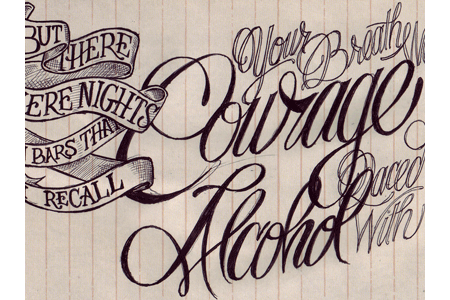 BUT THERE
ERE NIGHTS
BARS THA
RECALL
Your Breath W
Courage
Laced
Alcohol With